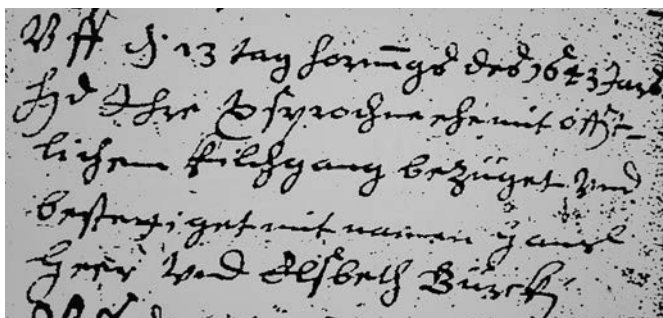 Uff dē 13 tag hornūgs des 1643 Jars
hand Ihre versprochne ehe mit offēt-
lichem kilchgang bezüget und
bestetiget mit namen Hans
Heer und Elsbeth Bürcki